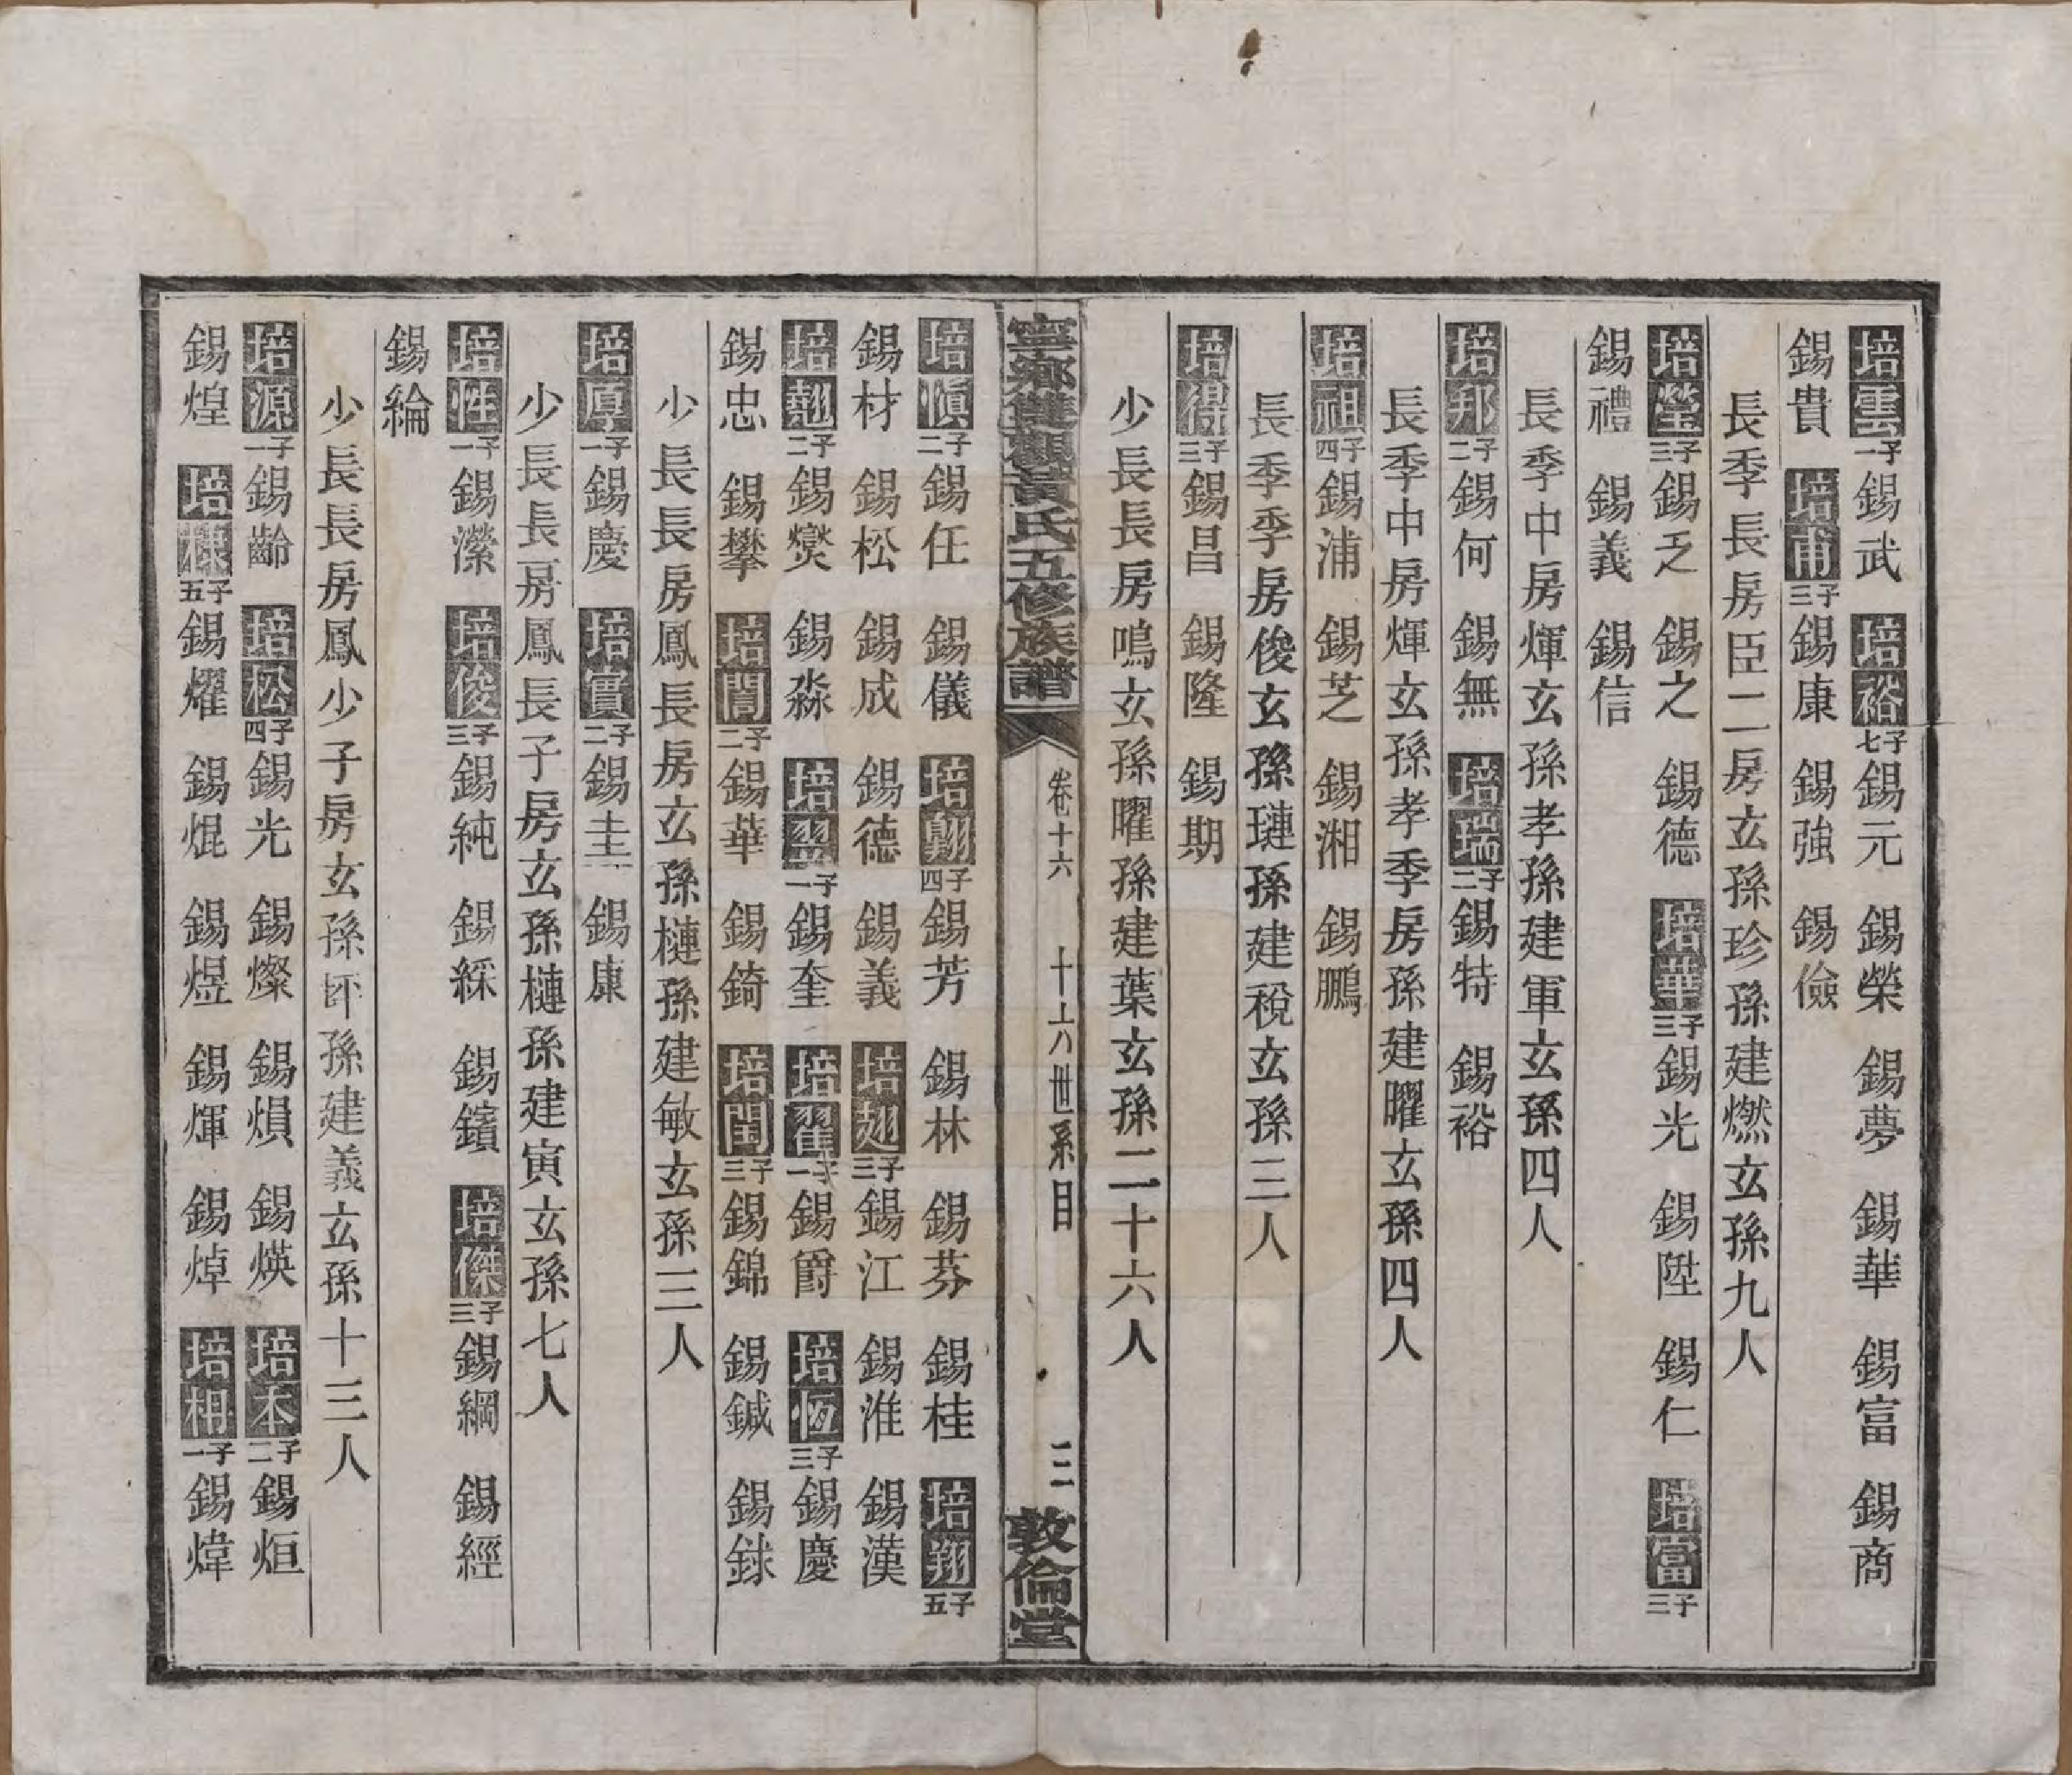 培雲子一錫武 培裕子七錫元 錫榮 錫夢 錫華 錫富 錫商
錫貴 培甫子三錫康 錫強 錫儉
長季長房臣二房玄孫珍孫建燃玄孫九人
培瑩子三錫乏 錫之 錫德 培華子三錫光 錫陞 錫仁 培富子三
錫禮 錫義 錫信
長季中房煇玄孫孝孫建軍玄孫四人
培邦子二錫何 錫無 培瑞子二錫特 錫裕
長季中房煇玄孫孝季房孫建曜玄孫四人
培祖子四錫浦 錫芝 錫湘 錫鵬
長季季房俊玄孫璉孫建稅玄孫三人
培得子三錫昌 錫隆 錫期
少長長房鳴玄孫曜孫建葉玄孫二十六人
寧鄉雙觀黃氏五修族譜 卷十六 十六世系目 三 敦倫堂
培慎子二錫任 錫儀 培翺子四錫芳 錫林 錫芬 錫桂 培翔子五
錫材 錫松 錫成 錫德 錫義 培翅子三錫江 錫淮 錫漢
培翹子二錫爕 錫淼 培翌子一錫奎 培翟子一錫爵 培恆子三錫慶
錫忠 錫攀 培誾子二錫華 錫錡 培閏子三錫錦 錫鍼 錫銶
少長長房鳳長房玄孫槤孫建敏玄孫三人
培厚子一錫慶 培實子二錫圭 錫康
少長長房鳳長子房玄孫槤孫建寅玄孫七人
培性子一錫濚 培俊子三錫純 錫綵 錫鑌 培傑子三錫綱 錫經
錫綸
少長長房鳳少子房玄孫孫建義玄孫十三人
培源子一錫齡 培松子四錫光 錫燦 錫熉 錫煐 培本子二錫烜
錫煌 培子五錫燿 錫焜 錫煜 錫煇 錫焯 培枏子一錫煒